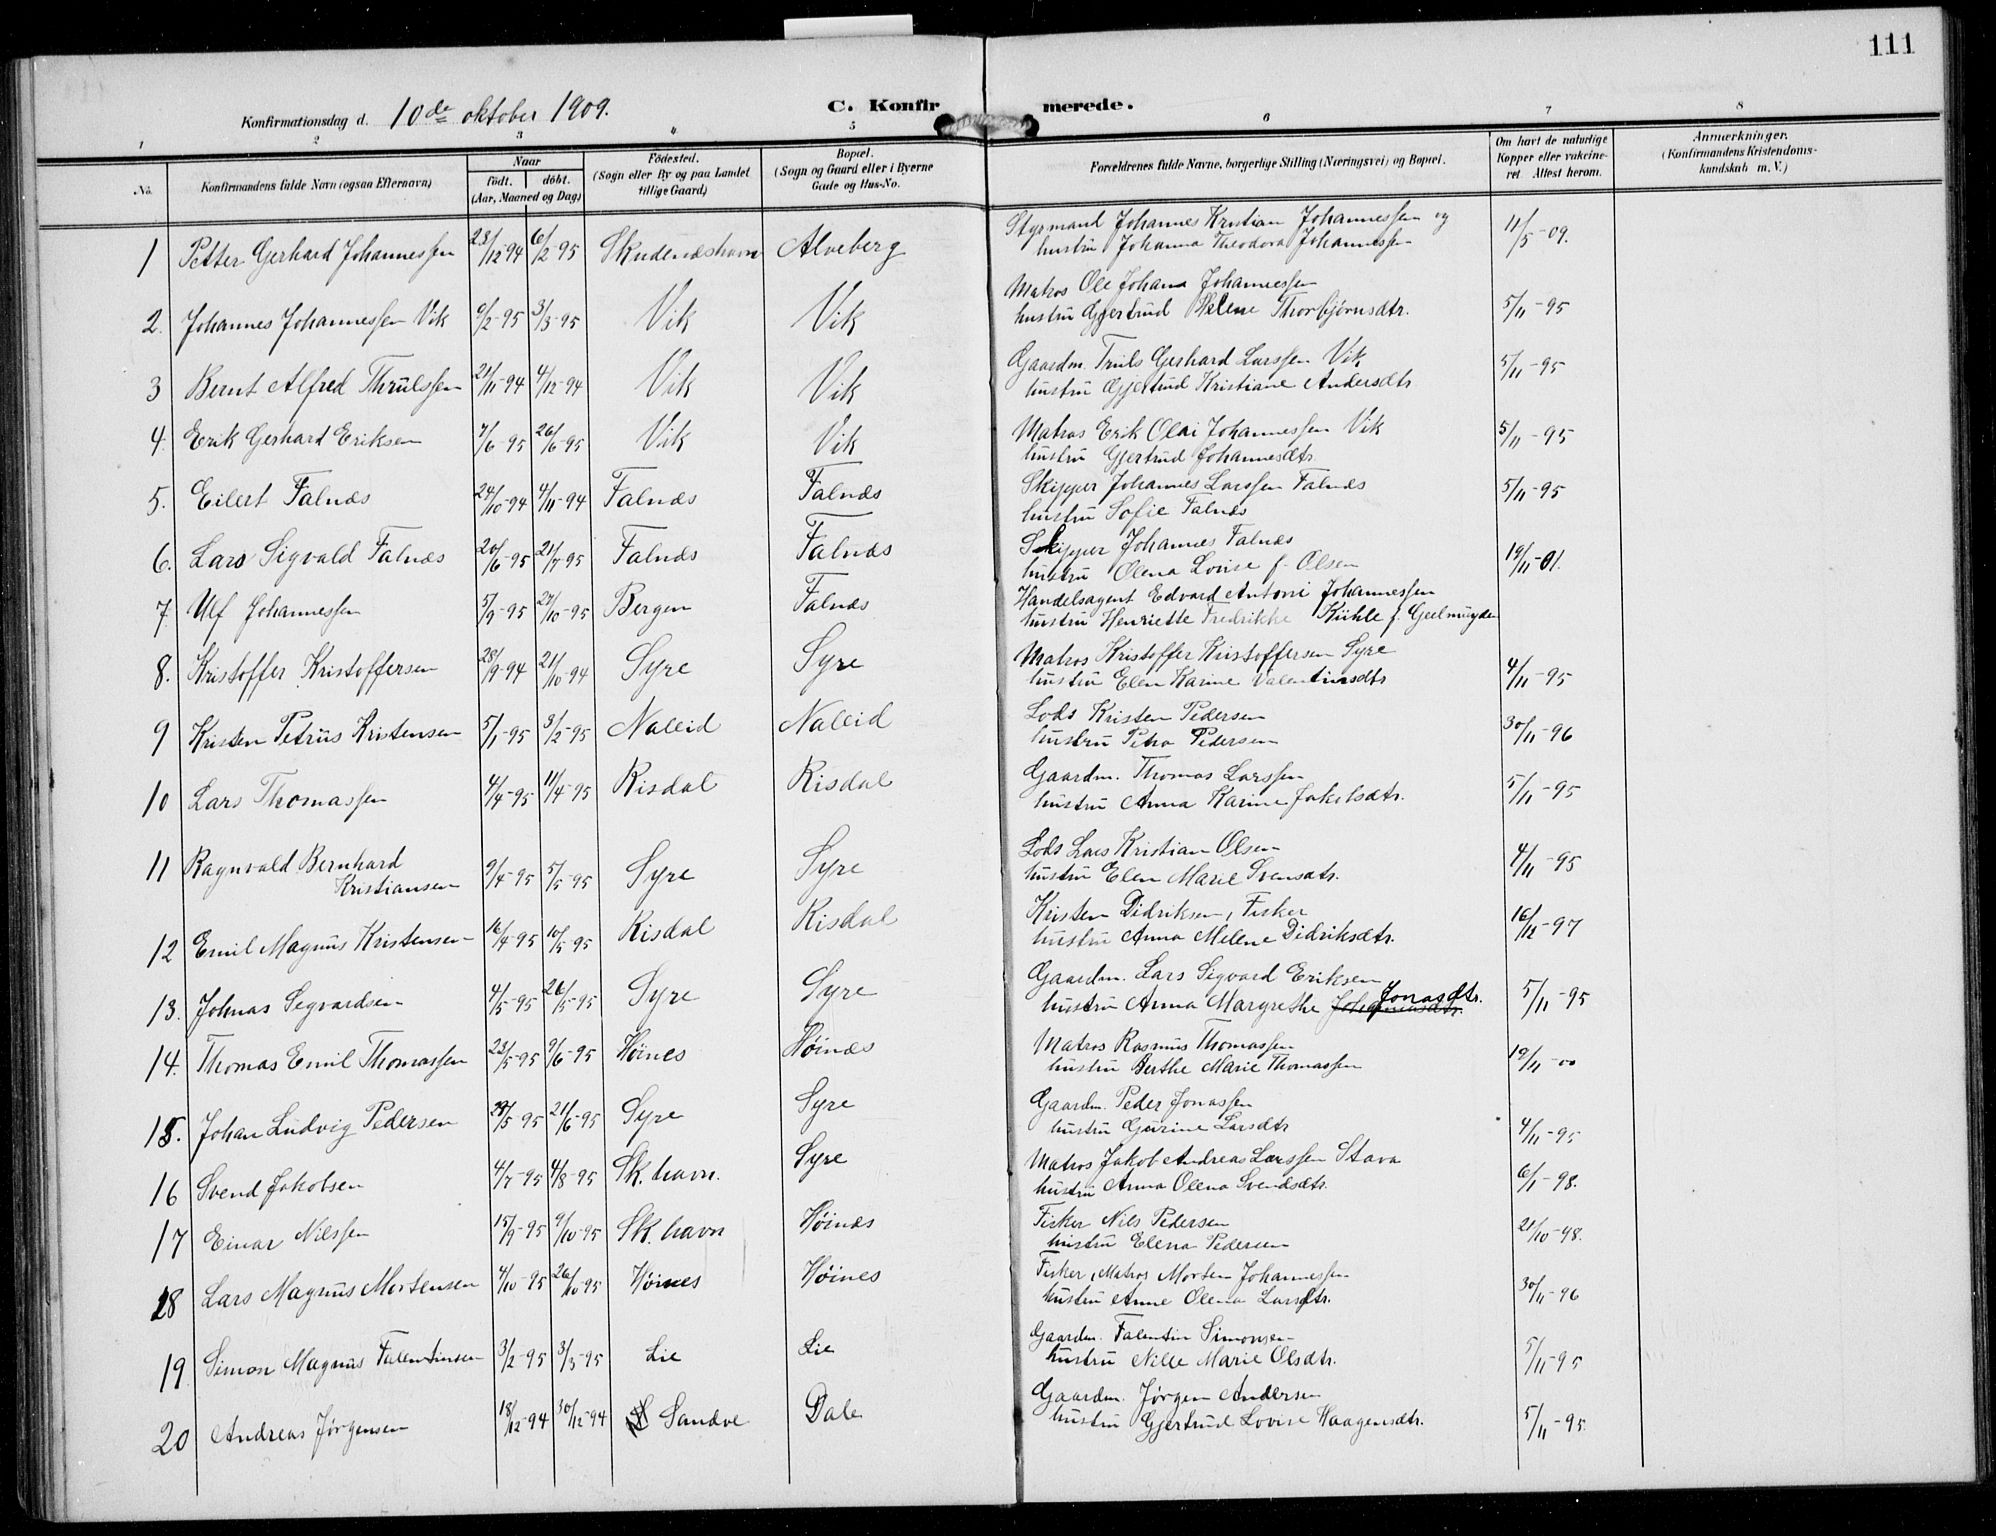 111
Konfirmationsdag d. 10de oktober 1909.
C. Konfirmerede.
1 2 3 4 5 6 7 8
No. Konfirmandens fulde Navn (ogsaa Efternavn) Naar født. døbt. (Aar, Maaned og Dag) Fødested. (Sogn eller By og paa Landet tillige Gaard) Bopæl. (Sogn og Gaard eller i Byerne Gade og Hus-No. Forældrenes fulde Navne, borgerlige Stilling (Næringsvei) og Bopæl. Om havt de naturlige Kopper eller vakcineret. Attest herom. Anmerkninger. (Konfirmandens Kristendomskundskab m. V.)
1 Petter Gerhard Johannessen 23/12-94 6/2-95 Skudeneshavn Alveberg Styrmand Johannes Kristian Johannessen og 11/5-09.
hustru Johanna Theodora Johannessen
2. Johannes Johannessen Vik 9/2-95 3/3-95 Vik Vik Matros Ole Johana Johannessen
hustru Gjertrud Helene Thorbjørnsdtr. 5/11-95
3 Bernt Alfred Thrulssen 21/11-94 4/12-94 Vik Vik Gaardm. Truls Gerhard Larssen Vik 5/11-95
hustru Gjertrud Kristiane Andersdtr
4. Erik Gerhard Eriksen 7/6 95 26/6-95 Vik Vik Matros Erik Olai Johannessen Vik 5/11-95
hustru Gjertrud Johannesdtr.
5. Eilert Falnæs 24/10-94 4/11-94 Falnæs Falnæs Skipper Johannes Larssen Falnæs 5/11-95
hustru Sofie Falnæs
6. Lars Sigvald Falnæs 20/6-95 21/7-95 Falnæs Falnæs Skipper Johannes Falnæs
hustru Olena Lovise f. Olsen 19/11-01.
7. Ulf Johannessen 5/9-95 27/10-95 Bergen Falnæs Handelsagent Edvard Antoni Johannessen
hustru Henriette Fredrikke Kühle f. Geelmuyden
8. Kristoffer Kristoffersen 28/9-94 21/10-94 Syre Syre Matros Kristoffer Kristoffersen Syre
hustru Elen Karine Valentinsdtr 4/11-95
9 Kristen Petrus Kristensen 5/1-95 3/2-95 Naleid Naleid Lods Kristen Pedersen
hustru Petra Pedersen 30/11-96
10 Lars Thomassen 4/4-95 11/4-95 Risdal Risdal Gaardm. Thomas Larssen
hustru Anna Karine Jakobsdtr. 5/11-95
11 Ragnvald Bernhard
Kristiansen 9/4-95 5/5-95 Syre Syre Lods Lars Kristian Olsen
hustru Elen Marie Svensdtr. 4/11-95
12 Emil Magnus Kristensen 16/4-95 10/5-95 Risdal Risdal Kristen Didriksen, Fisker
hustru Anna Melene Didriksdtr. 16/12-97
13. Johnas Segvardsen 4/5-95 26/5-95 Syre Syre Gaardm. Lars Sigvard Eriksen
hustru Anna Margrethe Jonasdtr. 5/11-95
14. Thomas Emil Thomassen 23/5-95 9/6-95 Høines Høinæs Matros Rasmus Thomassen
hustru Berthe Marie Thomassen 19/11-00
15. Johan Ludvig Pedersen 29/5-95 21/6-95 Syre Syre Gaardm. Peder Jonassen
hustru Gurine Larsdtr 4/11-95
16 Svend Jakobsen 4/7-95 4/8-95 Sk. havn. Syre Matros Jakob Andreas Larssen Stava
hustru Anna Olena Svendsdtr. 6/1-98.
17 Einar Nilssen 15/9-95 9/10-95 Sk. havn Høinæs Fisker Nils Pedersen
hustru Elena Pedersen 21/10-98.
18 Lars Magnus Mortensen 4/10-95 26/10-95 Høines Høines Fisker, Matros Morten Johannessen
hustru Anne Olena Larsdtr. 30/11-96
19 Simon Magnus Falentinsen 3/2-95 3/3-95 Lie Lie Gaardm. Falentin Simonsen
hustru Nille Marie Olsdtr. 5/11-95
20 Andreas Jørgensen 18/12-94 30/12-94 Sandve Dale Gaardm. Jørgen Andersen
hustru Gjertrud Lovise Haagensdtr. 5/11-95.